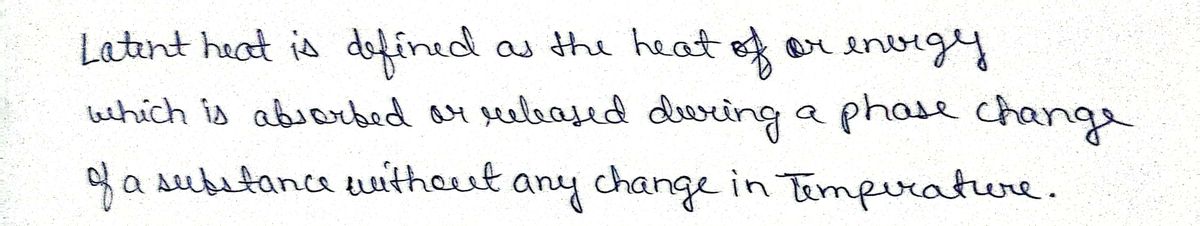 Latent heat is defined as the heat of or energy
which is absorbed or released during a phase change
of a substance without any change in Temperature.